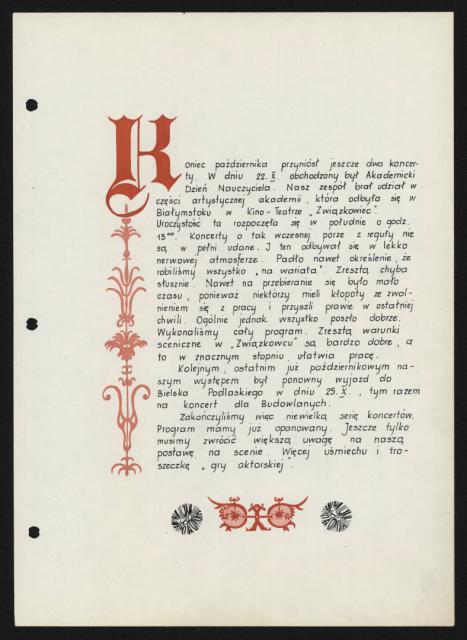 Koniec października przyniósł jeszcze dwa koncer-
ty. W dniu 22.X. obchodzony był Akademicki
Dzień Nauczyciela. Nasz zespół brał udział w
części artystycznej akademii, która odbyła się w
Białymstoku w Kino-Teatrze „Związkowiec".
Uroczystość ta rozpoczęła się w południe o godz.
13ºº. Koncerty o tak wczesnej porze z reguły nie
są w pełni udane. I ten odbywał się w lekko
nerwowej atmosferze. Padło nawet określenie, że
robiliśmy wszystko „na wariata". Zresztą chyba
słusznie. Nawet na przebieranie się było mało
czasu, ponieważ niektórzy mieli kłopoty ze zwol-
nieniem się z pracy i przyszli prawie w ostatniej
chwili. Ogólnie jednak wszystko poszło dobrze.
Wykonaliśmy cały program. Zresztą warunki
sceniczne w „Związkowcu" są bardzo dobre, a
to w znacznym stopniu ułatwia pracę.
Kolejnym, ostatnim już październikowym na-
szym występem był ponowny wyjazd do
Bielska Podlaskiego w dniu 25.X., tym razem
na koncert dla Budowlanych.
Zakończyliśmy więc niewielką serię koncertów.
Program mamy już opanowany. Jeszcze tylko
musimy zwrócić większą uwagę na naszą
postawę na scenie. Więcej uśmiechu i tro-
szeczkę „gry aktorskiej".